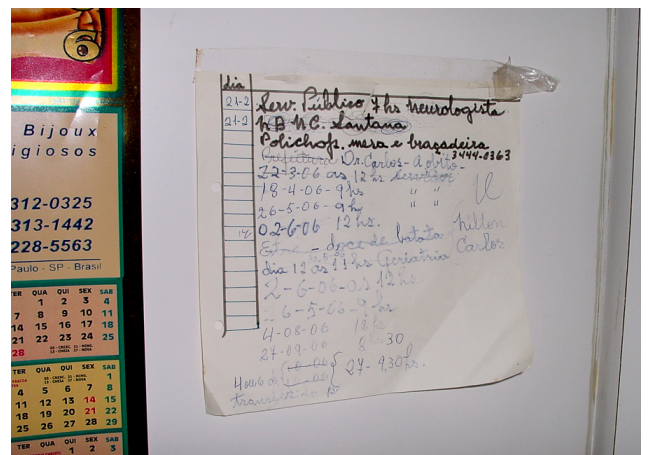 Bijoux
igiosos
312-0325
313-1442
228-5563
Paulo - SP - Brasil
TER QUA QUI SEX SAB
1 2 3 4
7 8 9 10 11
14 15 16 17 18
21 22 23 24 25
28
TER QUA QUI SEX SAB
1
4 5 6 7 8
11 12 13 14 15
18 19 20 21 22
25 26 27 28 29
TER QUA QUI SEX SAB
1 2 3
dia
21-2 Serv. Público 7 hs neurologista
21-2 N.C. Santana
Polichop. mesa e braçadeira
Prefeitura Dr. Carlos - 3444-0363
22-3-06 as 12 hs
18-4-06-9 hs " "
26-5-06-9 hs " "
02-6-06 12 hs.
- doce de batata Nilton
dia 12 as 11 hs Geriatria Carlos
2-6-06 as 12 hs
26-5-06-9 hs
4-08-06 12 hs
27-09-06 30
27-9,30 hs.